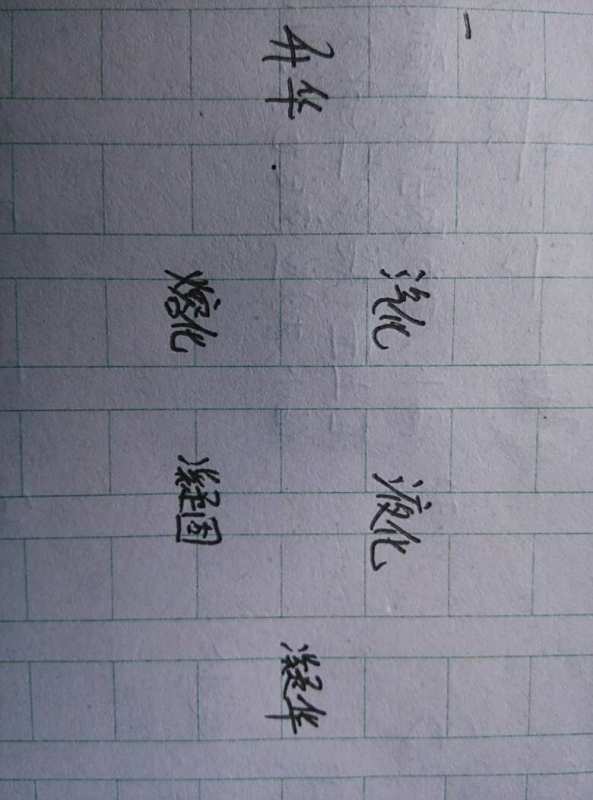 一
汽化 液化
升华 凝华
熔化 凝固